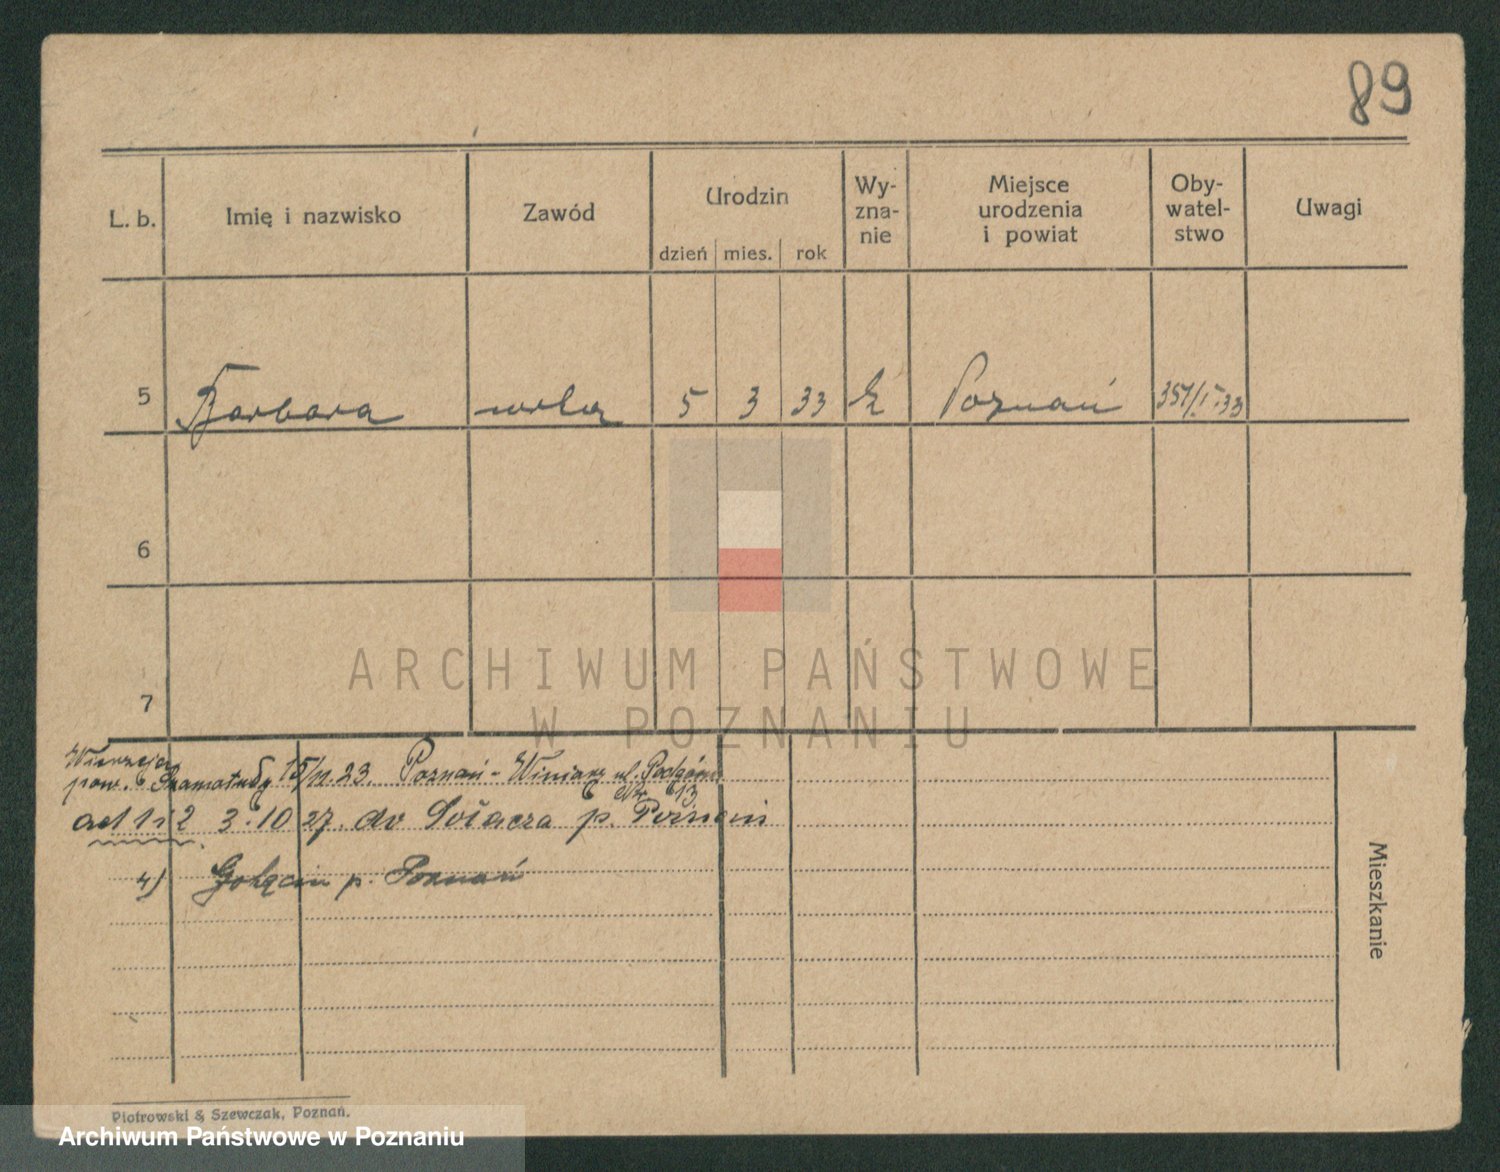 89
L. b. Imię i nazwisko Zawód Urodzin dzień mies. rok Wy-zna-nie Miejsce urodzenia i powiat Oby-watel-stwo Uwagi
5 Barbara córka 5 3 33 k Poznań 351/I-33
6
7
ARCHIWUM PAŃSTWOWE
W POZNANIU
pow. Szamotuły 15/11.23. Poznań-Winiary ul. Podgórna
Nr. 13
ad 1 i 2 3.10 27. do Sołacza p. Poznań
4) Golęcin p. Poznań
Mieszkanie
Piotrowski & Szewczak, Poznań.
Archiwum Państwowe w Poznaniu